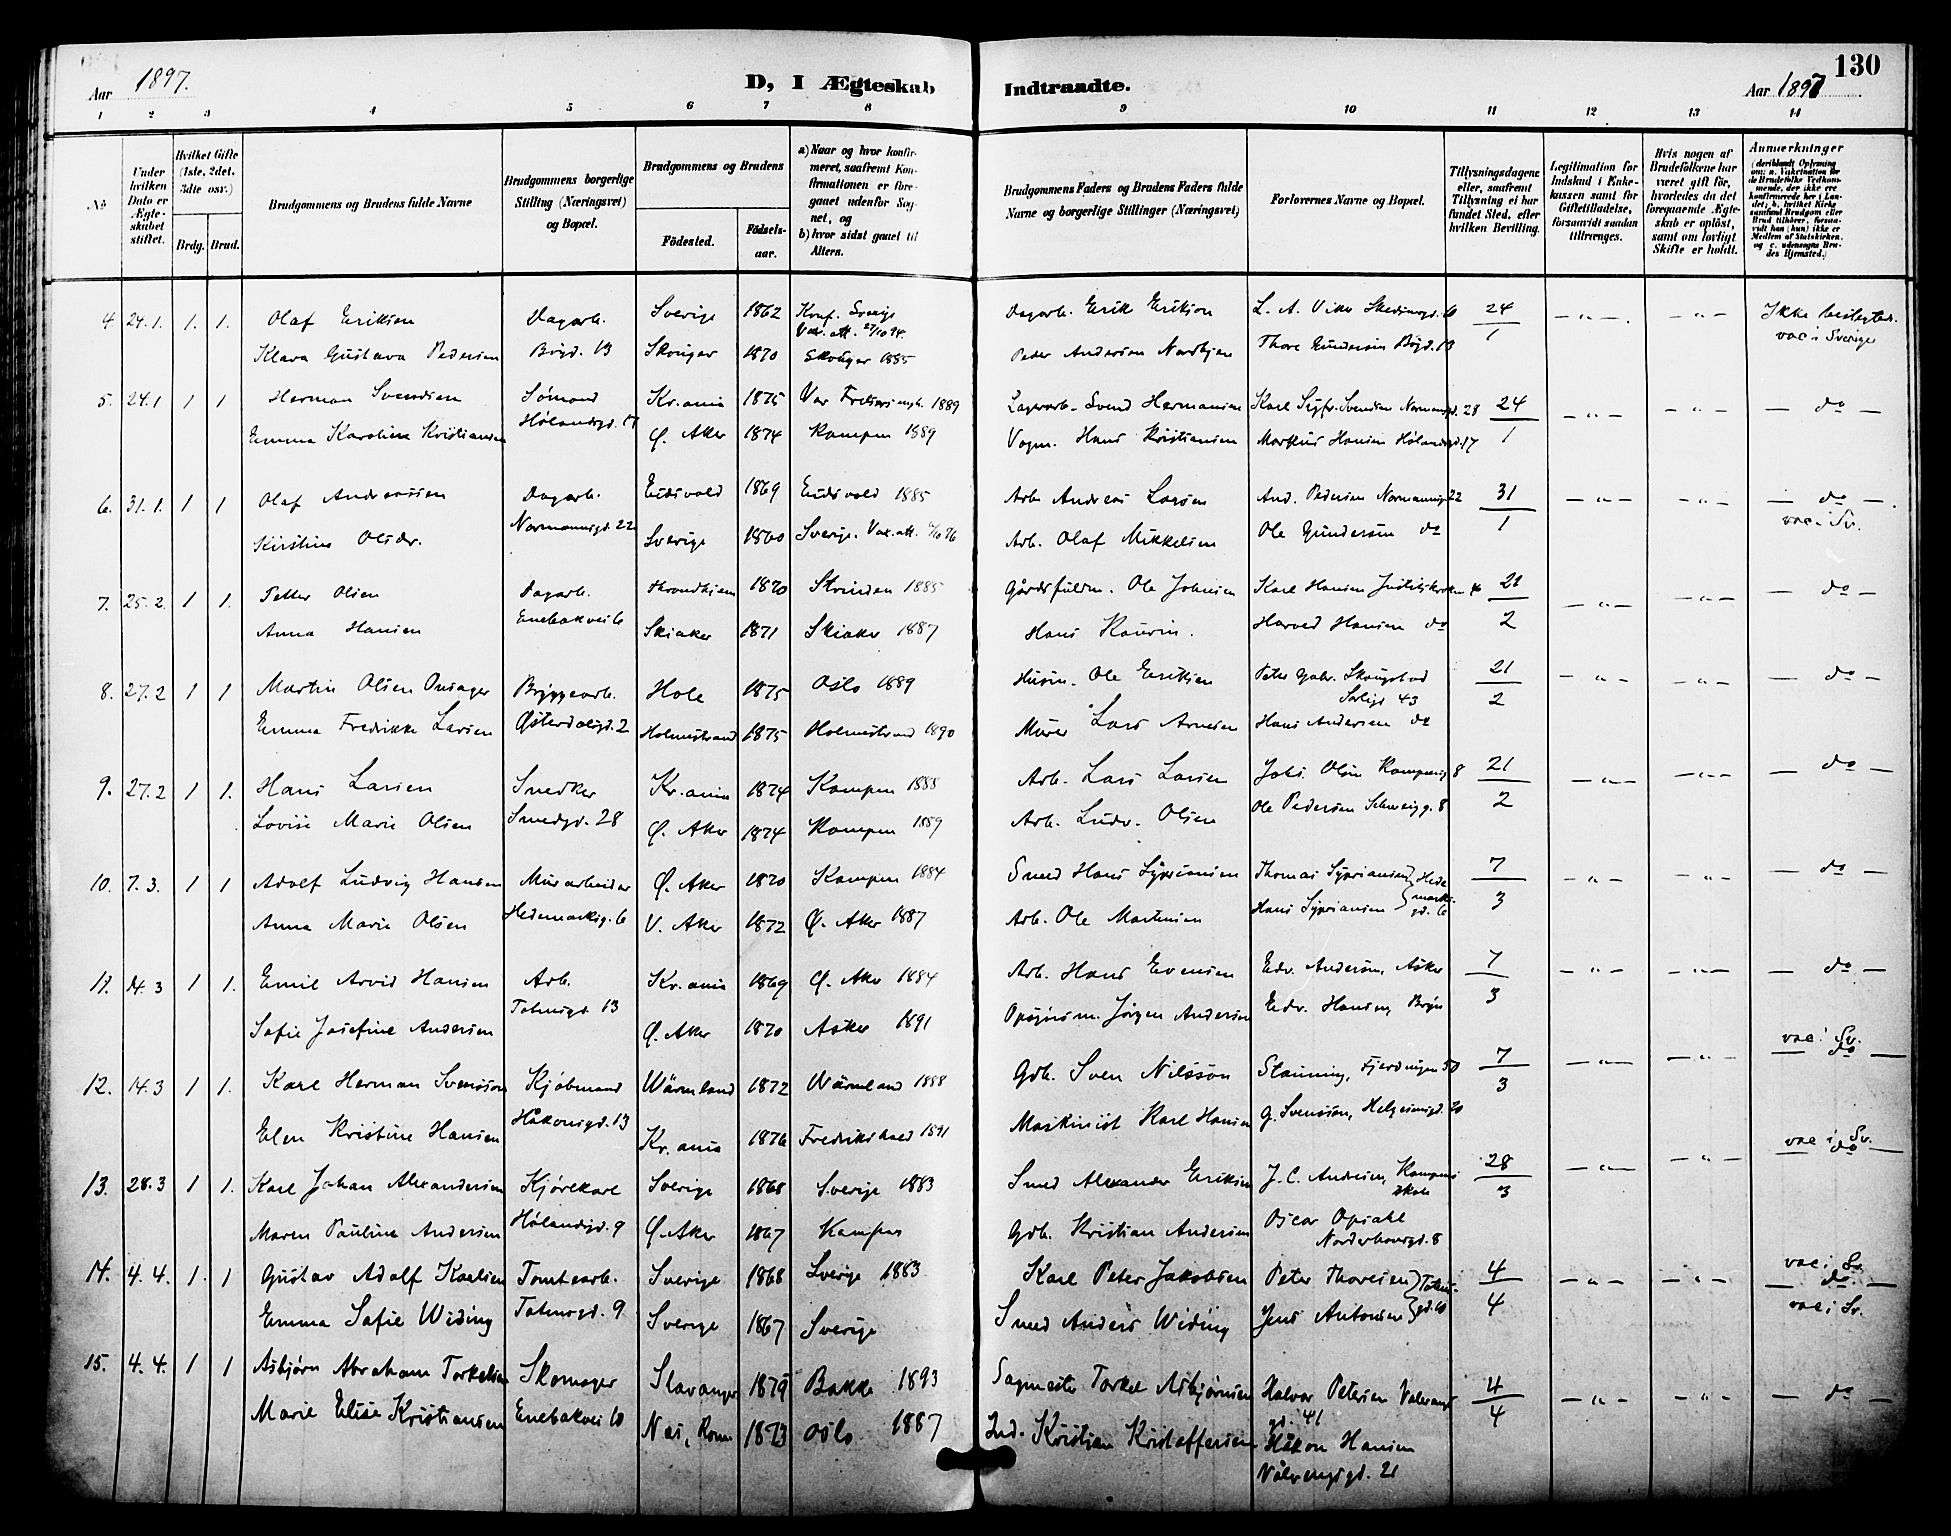 130
Aar 1897.
D, I Ægteskab Indtraadte.
Aar 1897
1 2 3 4 5 6 7 8 9 10 11 12 13 14
No.
Under hvilken Dato er Ægteskabet stiftet.
Hvilket Gifte (1ste, 2det, 3die osv.)
Brdg. Brud.
Brudgommens og Brudens fulde Navne
Brudgommens borgerlige Stilling (Næringsvei) og Bopæl.
Brudgommens og Brudens
Fødested. Fødselsaar.
a) Naar og hvor konfirmeret, saafremt Konfirmationen er foregaaet udenfor Sognet, og
b) hvor sidst gaaet til Alters.
Brudgommens Faders og Brudens Faders fulde Navne og borgerlige Stillinger (Næringsvei)
Forlovernes Navne og Bopæl.
Tillysningsdagene eller, saafremt Tillysning ei har fundet Sted, efter hvilken Bevilling.
Legitimation for Indskud i Enkekassen samt for Giftetilladelse, forsaavidt saadan tiltrænges.
Hvis nogen af Brudefolkene har været gift før, hvorledes da det foregaaende Ægteskab er opløst, samt om lovligt Skifte er holdt.
Anmærkninger (deriblandt Oplysning om: a. Vakcination for de Brudefolks Vedkommende, der ikke ere konfirmerede her i Landet; b. hvilket Kirkesamfund Brudgom eller Brud tilhører, forsaavidt han (hun) ikke er Medlem af Statskirken, og c. udensogns Brudes Hjemsted.)
4. 24.1. 1. 1. Olaf Eriksen Dagarb. Sverige 1862 Knf. Sverige Vac. att. 27/10 94. Dagarb. Erik Erikson L. A. Viker 24/1 — " — — " — Ikke beslegted.
Klara Gustava Pedersen Bøgd. 13 Skouger 1870 Skouger 1885 Peder Andersen Thore Gundersen Bøgd. 13 vac i Sverige
5. 24.1 1 1 Herman Svendsen Sømand Kr.ania 1875 Vor 1889 Lagerarb. Svend Hermansen Karl Sigfr. Svendsen Normansgd. 28 24/1 — " — — " — — do —
Emma Karoline Kristiansen Hølandsgd. 17 Ø. Aker 1874 Kampen 1889 Vogm. Hans Kristiansen Markus Hansen Hølandsgd. 17
6. 31.1. 1 1 Olaf Andreassen Dagarb. Eidsvold 1869 Eidsvold 1885 Arb. Andreas Larsen And. Pedersen Normannsgd. 22 31/1 — " — — " — — do —
Kirstine Olsdr. Normannsgd. 22 Sverige 1860 Sverige. Vac. att. Arb. Olaf Mikkelsen Ole Gundersen do vac i Sv.
7. 25.2. 1 1. Petter Olsen Dagarb. Throndhjem 1870 Strinden 1885 Gårdsfuldm. Ole Johnsen Karl Hansen 21/2 — " — — " — — do —
Anna Hansen Enebakvei 6 Skiaker 1871 Skiaker 1887 Hans Harved Hansen do
8. 27.2 1 1 Martin Olsen Onsager Bryggearb. Hole 1875 Oslo 1889 Husm. Ole Eriksen Peter Gabr. Skougstad Sørligt 43 21/2 — " — — " — — do —
Emma Fredrikke Larsen Østerdalsgd. 2 Holmestrand 1875 Holmestrand 1890 Murer Lars Arnesen Hans Andersen do
9. 27.2 1 1. Hans Larsen Snedker Kr.ania 1874 Kampen 1888 Arb. Lars Larsen Johs. Olsen Kampensg 8 21/2 — " — — " — — do —
Lovise Marie Olsen Smedgd. 28 Ø. Aker 1874 Kampen 1889 Arb. Ludv. Olsen Ole Pedersen Schweigg. 8
10. 7.3. 1 1 Adolf Ludvig Hansen Murarbeider Ø. Aker 1870 Kampen 1884 Smed Hans Sypriansen Thomas Sypriansen } Hedemarksgd. 6 7/3 — " — — " — — do —
Anna Marie Olsen Hedemarksg. 6 V. Aker 1872 Ø. Aker 1887 Arb. Ole Martinsen Hans Sypriansen
11. 14.3 1 1. Emil Arvid Hansen Arb. Kr.ania 1869 Ø. Aker 1884 Arb. Hans Evensen Edv. Andersen, Asker 7/3 — " — — " — — do —
Sofie Josefine Andersen Totensgd. 13 Ø. Aker 1870 Asker 1891 Opsynsm. Jørgen Andersen Edv. Hansen, Bryn
12. 14.3 1 1. Karl Herman Svensson Kjøbmand Wärmland 1872 Wärmland 1888 Gdb. Sven Nilsson Stamning, Fjerdingen 50 7/3 — " — — " — vac i Sv. — do —
Elen Kristine Hansen Håkonsgd. 13 Kr.ania 1876 Fredrikshald 1891 Maskinist Karl Hansen G. Svensson, Helgesensgd. 20
13. 28.3 1 1. Karl Johan Alexandersen Kjørekarl Sverige 1868 Sverige 1883 Smed Alexander Eriksen J. C. Andresen, Kampens skole 28/3 — " — — " — vac i Sv. — do —
Maren Pauline Andersen Hølandsgd. 9 Ø. Aker 1867 Kampen Gdb. Kristian Andersen Oscar Opsahl Norderhovsgd. 8
14. 4.4. 1. 1 Gustav Adolf Karlsen Tomtearb. Sverige 1868 Sverige 1883 Karl Peter Jakobsen Peter Thoresen } Totensgd. 10 4/4 — " — — " — vac i Sv. — do. —
Emma Sofie Widing Totensgd. 9 Sverige 1867 Sverige Smed Anders Widing Jens Antonsen vac i Sv.
15. 4.4. 1 1 Asbjørn Abraham Torkelsen Skomager Stavanger 1879 Bakke 1893 Sagmester Torkel Asbjørnsen Halvor Petersen gd. 41 4/4 — " — — " — — do —
Marie Elise Kristiansen Enebakvei 10 Nes, Rom 1873 Oslo 1887 Ind. Kristian Kristoffersen Håkon Hansen
Vålerengsgd. 21